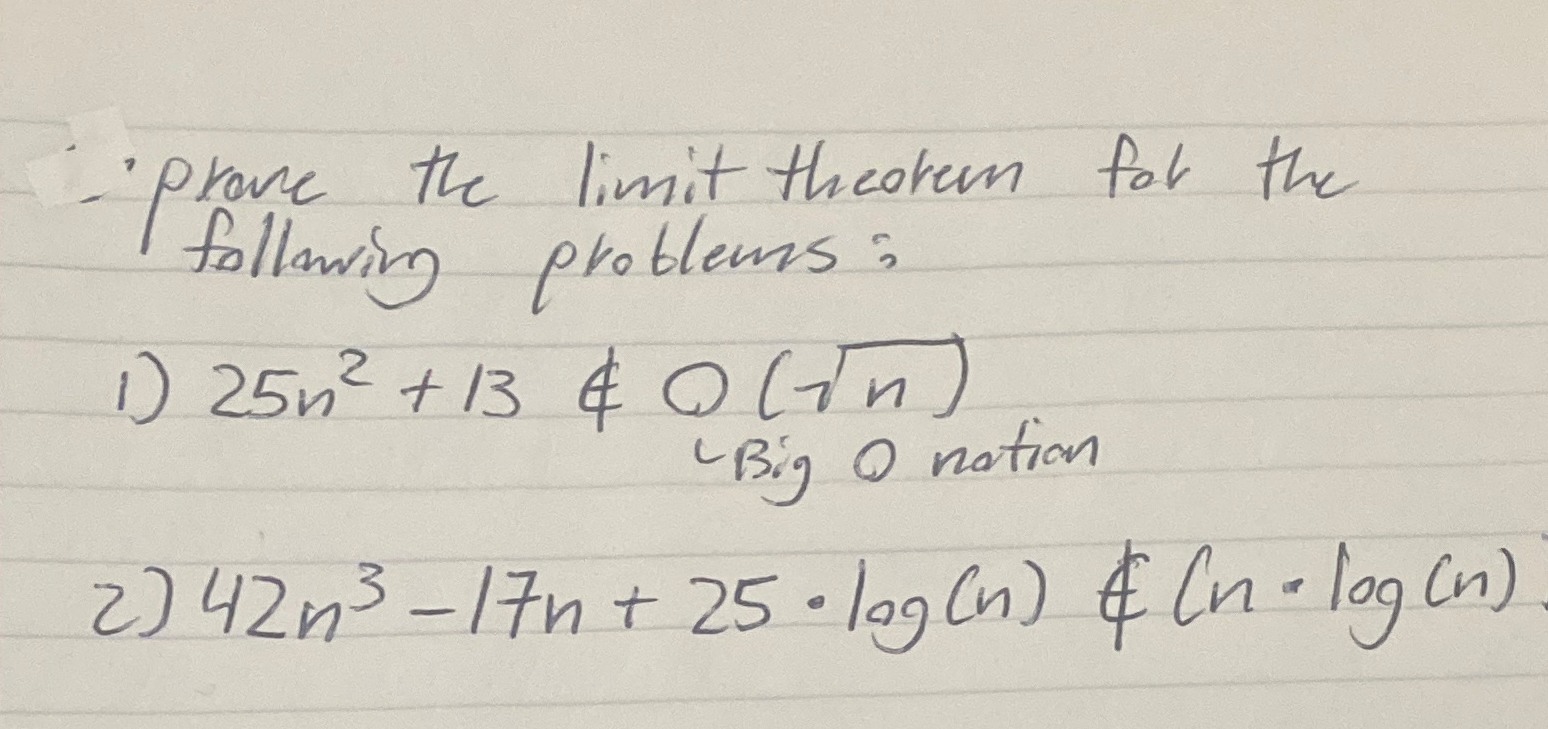 prove the limit theorem for the
following problems:
1) 25n² + 13 ∉ O(√n)
Big O notion
2) 42n³ - 17n + 25 · log(n) ∉ (n · log(n)